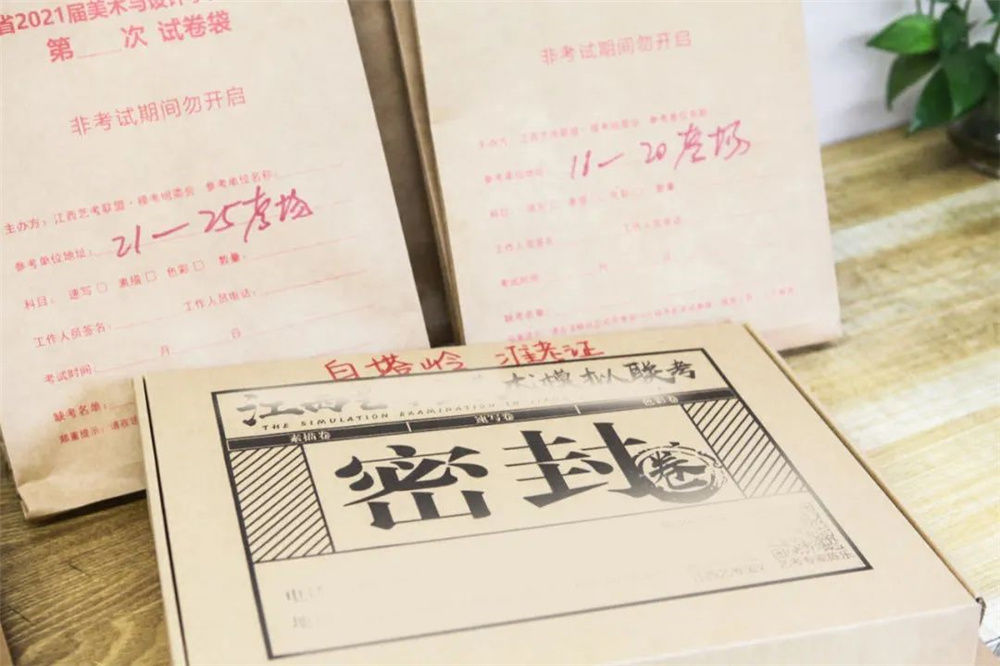 省2021届美术与设计
第 次 试卷袋
非考试期间勿开启
主办方：江西艺考联盟·模考组委会 参考单位名称：
参考单位地址：
21—25考场
科目： 速写 □ 素描 □ 色彩 □ 数量：
工作人员签名： 工作人员电话：
月 日
考试时间：
缺考名单：
郑重提示：请在
非考试期间勿开启
主办方：江西艺考联盟·模考组委会 参考单位名称
参考单位地址
11—20考场
科目： 速写 □ 素描 □ 色彩 □ 数量
工作人员签名 工作人员电话
月 日
考试时间
缺考名单：
白塔岭 准考证
江西 术模拟联考
THE SIMULATION EXAMINATION IN
素描卷 速写卷 色彩卷
密封卷
艺考专家